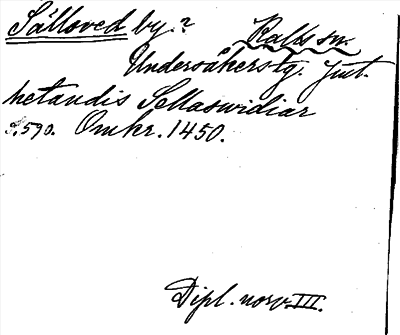 Sålloved by.? Kalls sn.
Undersåkers tg. Jmt.
hetandis Sellaswidiar
s.590. Omkr. 1450.
Dipl. norv. III.